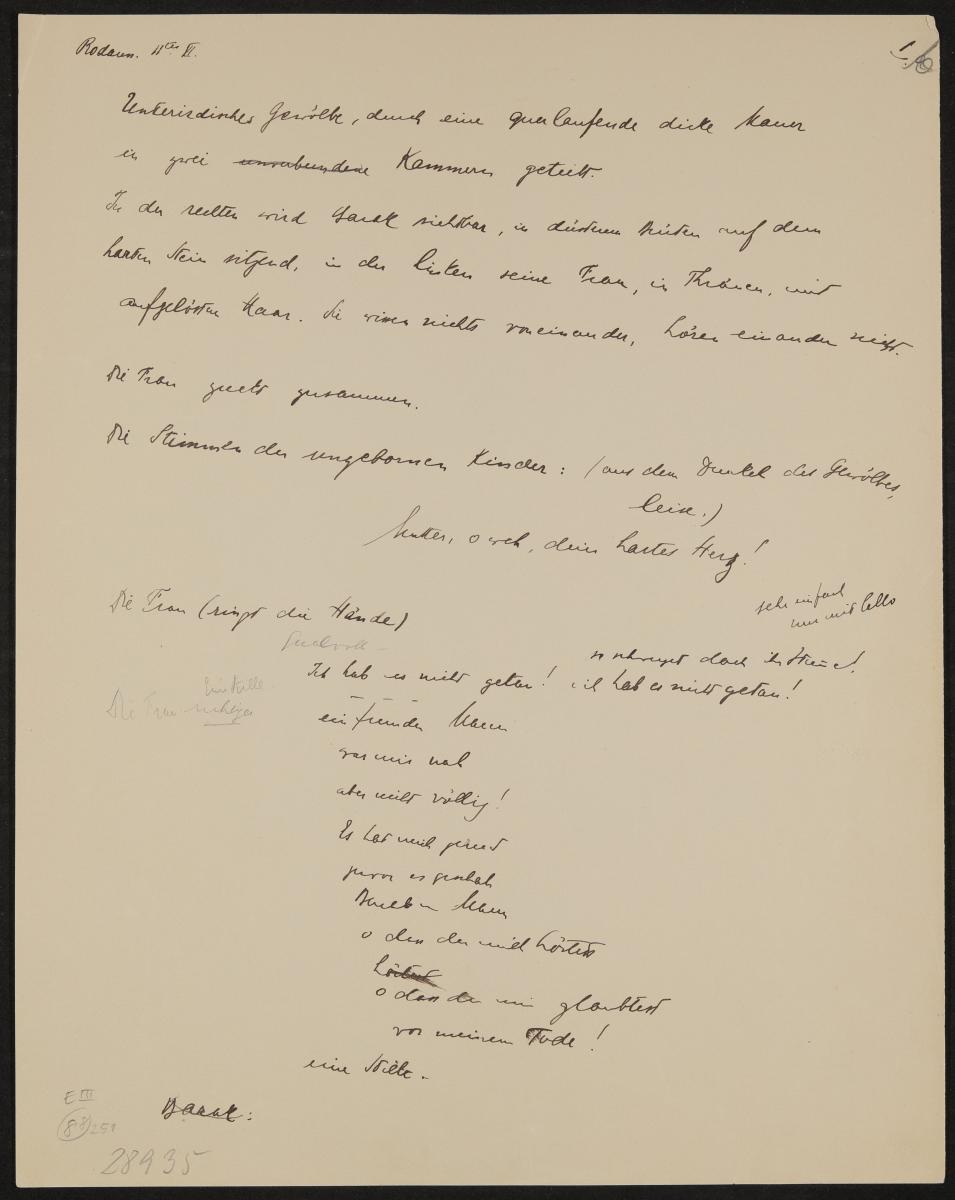 Rodaun. 11ten VI.
1.
Unterirdisches Gewölbe, durch eine querlaufende dicke Mauer
in zwei Kammern geteilt.
In der rechten wird Barak sichtbar, in düsterem Brüten auf dem
harten Stein sitzend, in der linken seine Frau, in Thränen, mit
aufgelöstem Haar. Sie wissen nichts voneinander, hören einander nicht.
Die Frau zuckt zusammen.
Die Stimmen der ungebornen Kinder: (aus dem Dunkel des Gewölbes,
leise.)
Mutter, o weh, dein hartes Herz!
sehr einfach
nur mit Cello
Die Frau (ringt die Hände)
so schweiget doch ihr Stimmen!
Ich hab es nicht getan! ich hab es nicht getan!
Die Frau
ein fremder Mann
war mir nah
aber nicht völlig!
Es hat mich gereut
zuvor es geschah
Barak Mann
o dass du mich hörtest
hörtest
o dass du mir glaubtest
vor meinem Tode!
eine Stille.
Barak:
E III
251
28935